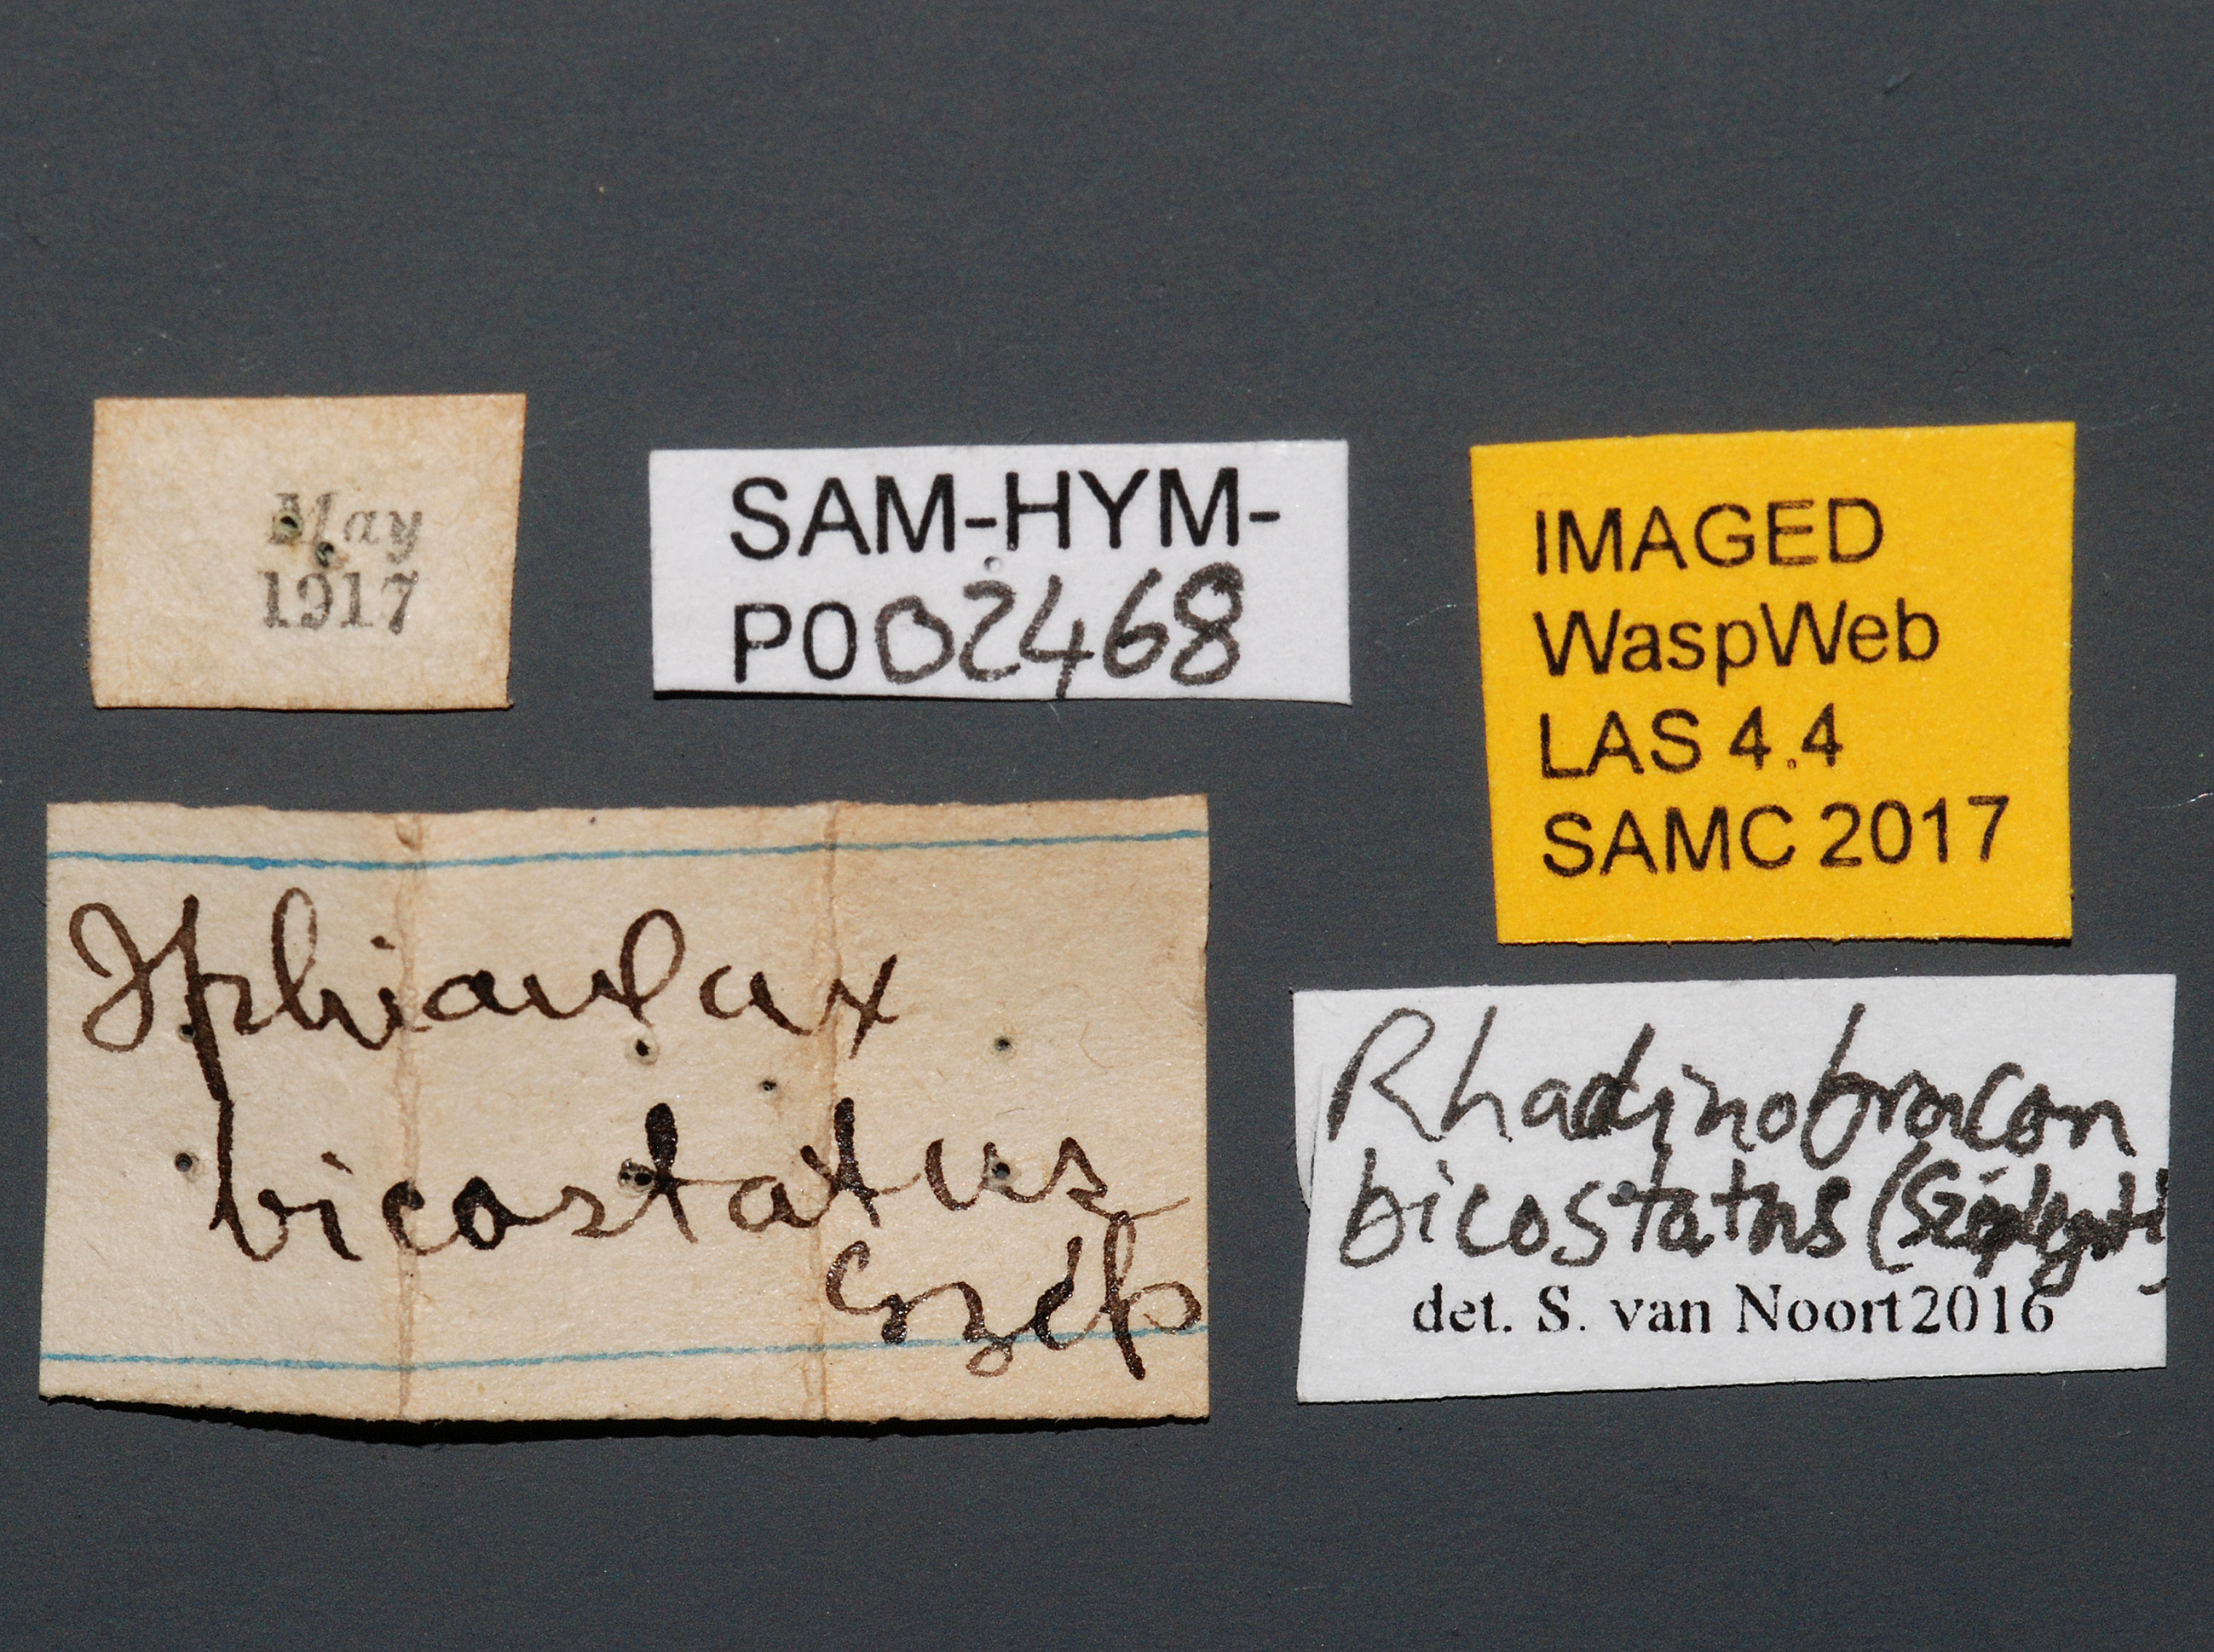 May
1917
SAM-HYM-
P002468
IMAGED
WaspWeb
LAS 4.4
SAMC 2017
Iphiaulax
bicostatus
Szép
Rhadinobracon
bicostatus (Szépligeti)
det. S. van Noort 2016